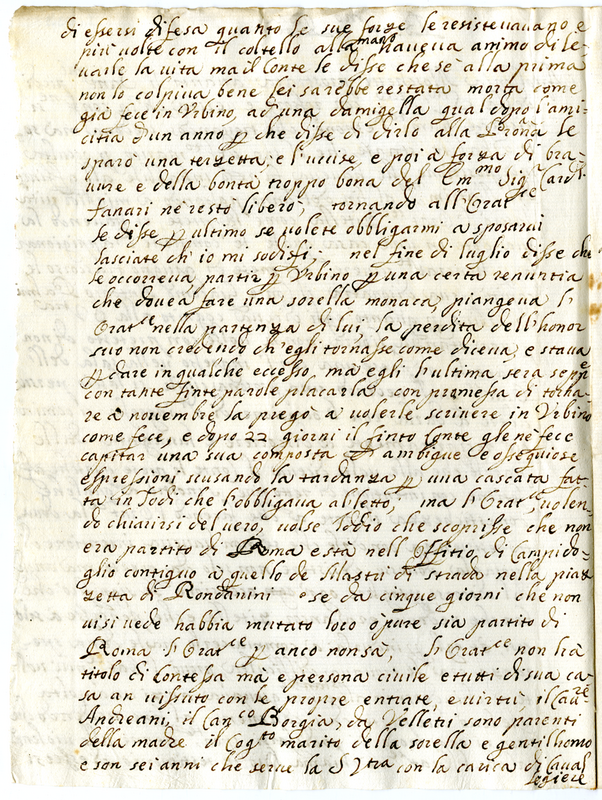 di essersi difesa quanto le sue forze le resistevavano e
più volte con il coltello alla mano haueua animo di le-
uarle la vita ma il Conte le disse che se alla prima
non lo colpiua bene lei sarebbe restata morta come
già fece in Vrbino, ad una damigella qual dopo l'ami-
citia d'un anno p che disse di dirlo alla Prona le
sparò una terzetta, e l'uccise, e poi a forza di bra-
uure e della bontà troppo bona del Em.mo Sig. Card.
fanari ne restò libero; tornando all'Orat.ce
le disse p ultimo se volete obbligarmi a sposarui
lasciate ch'io mi sodisfi; nel fine di luglio disse che
le occorreua partir p Vrbino p una certa renuntia
che douea fare una sorella monaca, piangeua l'
Orat.ce nella partenza di lui, la perdita dell'honor
suo non credendo ch'egli tornasse come diceua, e staua
p dare in qualche eccesso ma egli l'ultima sera seppe
con tante finte parole placarla con promessa di torna-
re a nouembre la pregò a volerle scriuere in Vrbino
come fece, e dopo 22 giorni il finto Conte gle ne fece
capitar una sua composta d'ambigue e ossequiose
espressioni scusando la tardanza p una cascata fat-
ta in Todi che l'obbligaua al letto, ma l'Orat.ce volen-
do chiarirsi del vero, volse Iddio che scoprisse che non
era partito di Roma e stà nell'Offitio, di Campido-
glio contiguo a quello de Mastri di strada nella piaz
zetta di Rondanini se da cinque giorni che non
ui si vede habbia mutato loco ò pure sia partito di
Roma l'Orat.ce p anco non sà, l'Orat.ce non hà
titolo di Contessa ma è persona civile e tutti di sua ca-
sa an vissuto con le propre entrate, e uirtù, il Cau.re
Andreani, il Can.co Borgia, da Velletri sono parenti
della madre il Cog.to marito della sorella e gentilhomo
e son sei anni che serue la S V.tra con la carica di Caual
legiere